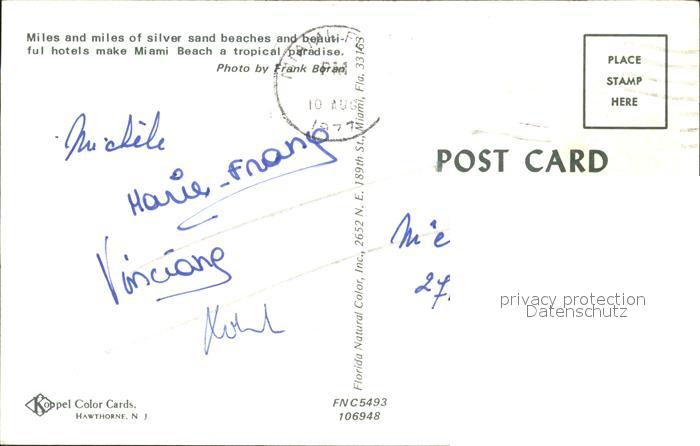 Miles and miles of silver sand beaches and beauti-
ful hotels make Miami Beach a tropical paradise.
Photo by Frank Boran
MIAMI, F
PM
10 AUG
1977
PLACE
STAMP
HERE
POST CARD
Michèle
Marie-Franç
Vinciane
Florida Natural Color, Inc., 2652 N. E. 189th St., Miami, Fla. 33163
M e
27
privacy protection
Datenschutz
Koppel Color Cards.
HAWTHORNE, N J
FNC5493
106948